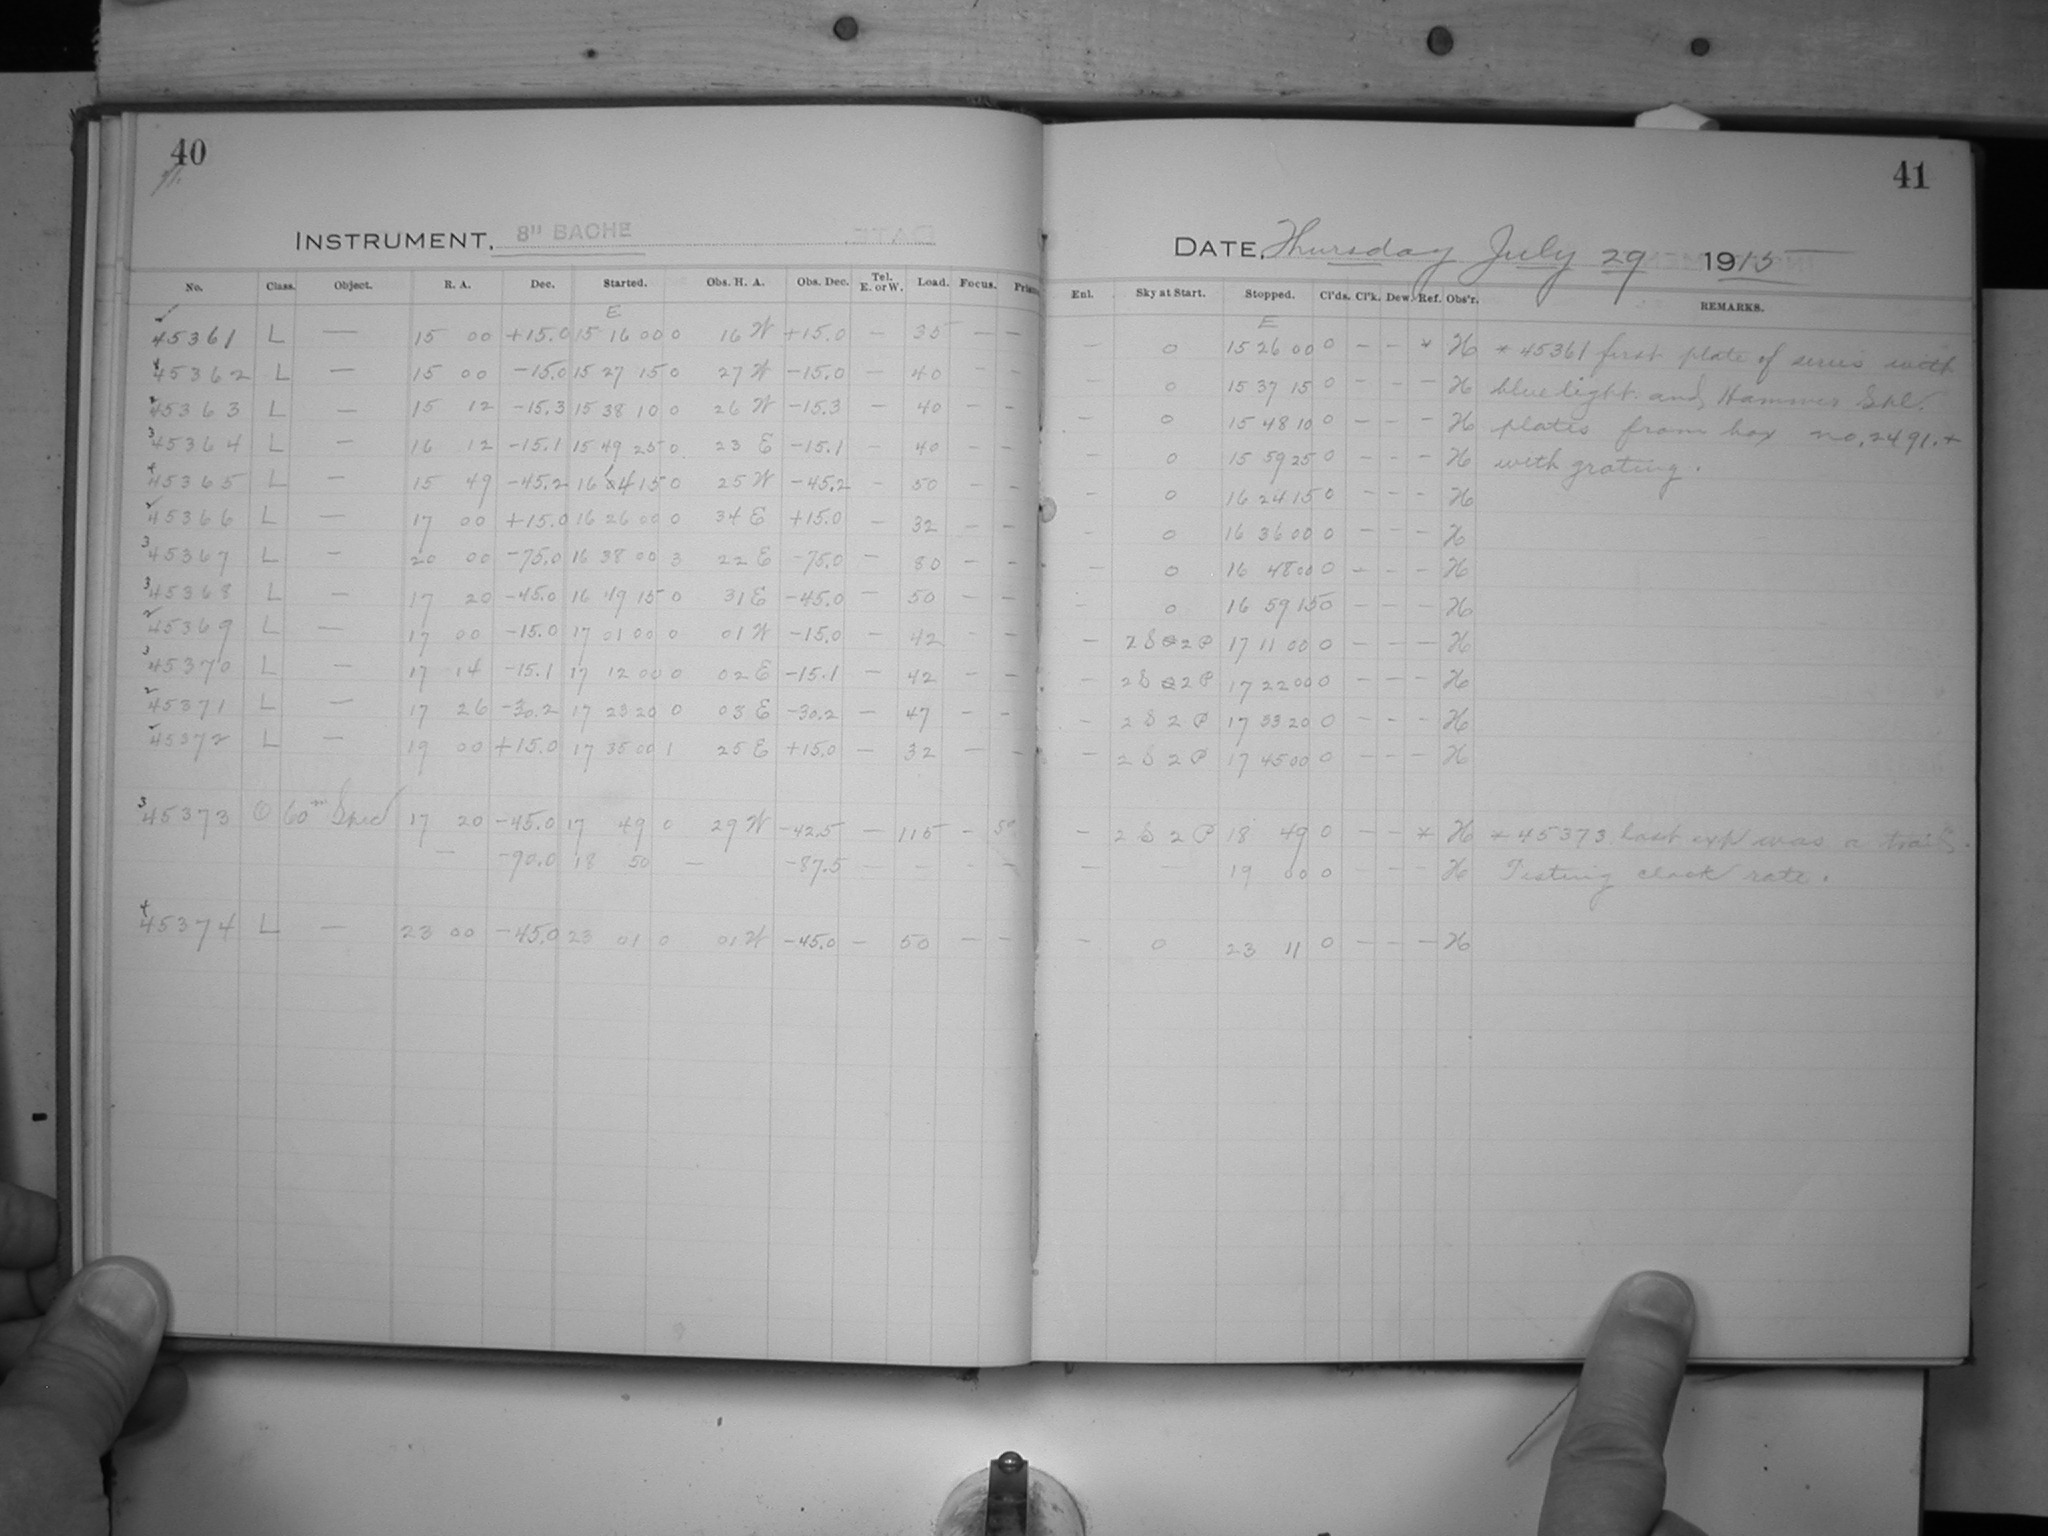 40
INSTRUMENT, 8" BACHE
No. Class. Object. R. A. Dec. Started. Obs. H. A. Obs. Dec. Tel. E. or W. Load. Focus.
E
45361 L — 15 00 +15.0 15 16 00 0 16 W +15.0 — 35 — —
45362 L — 15 00 -15.0 15 27 15 0 27 W -15.0 — 40 — —
45363 L — 15 12 -15.3 15 38 10 0 26 W -15.3 — 40 — —
45364 L — 16 12 -15.1 15 49 25 0 23 E -15.1 — 40 — —
45365 L — 15 49 -45.2 16 14 15 0 25 W -45.2 — 50 — —
45366 L — 17 00 +15.0 16 26 00 0 34 E +15.0 — 32 — —
45367 L — 20 00 -75.0 16 38 00 3 22 E -75.0 — 80 — —
45368 L — 17 20 -45.0 16 49 15 0 31 E -45.0 — 50 — —
45369 L — 17 00 -15.0 17 01 00 0 01 W -15.0 — 42 — —
45370 L — 17 14 -15.1 17 12 00 0 02 E -15.1 — 42 — —
45371 L — 17 26 -30.2 17 23 20 0 03 E -30.2 — 47 — —
45372 L — 19 00 +15.0 17 35 00 1 25 E +15.0 — 32 — —
45373 O 60m Spec 17 20 -45.0 17 49 0 29 W -42.5 — 115 —
— -90.0 18 50 — -87.5 — — — —
45374 L — 23 00 -45.0 23 01 0 01 W -45.0 — 50 — —
41
DATE, Thursday July 29 1915
Enl. Sky at Start. Stopped. Cl'ds. Cl'k. Dew. Ref. Obs'r. REMARKS.
E
— 0 15 26 00 0 — — * H * 45361 first plate of series with
— 0 15 37 15 0 — — — H blue light and Hammer Spl.
— 0 15 48 10 0 — — — H plates from box no. 2491. +
— 0 15 59 25 0 — — — H with grating.
— 0 16 24 15 0 — — — H
— 0 16 36 00 0 — — — H
— 0 16 48 00 0 — — — H
— 0 16 59 15 0 — — — H
— 2 S 2 P 17 11 00 0 — — — H
— 2 S 2 P 17 22 00 0 — — — H
— 2 S 2 P 17 33 20 0 — — — H
— 2 S 2 P 17 45 00 0 — — — H
— 2 S 2 P 18 49 0 — — * H * 45373 last exp was a trail.
— — 19 00 0 — — — H Testing clock rate.
— 0 23 11 0 — — — H